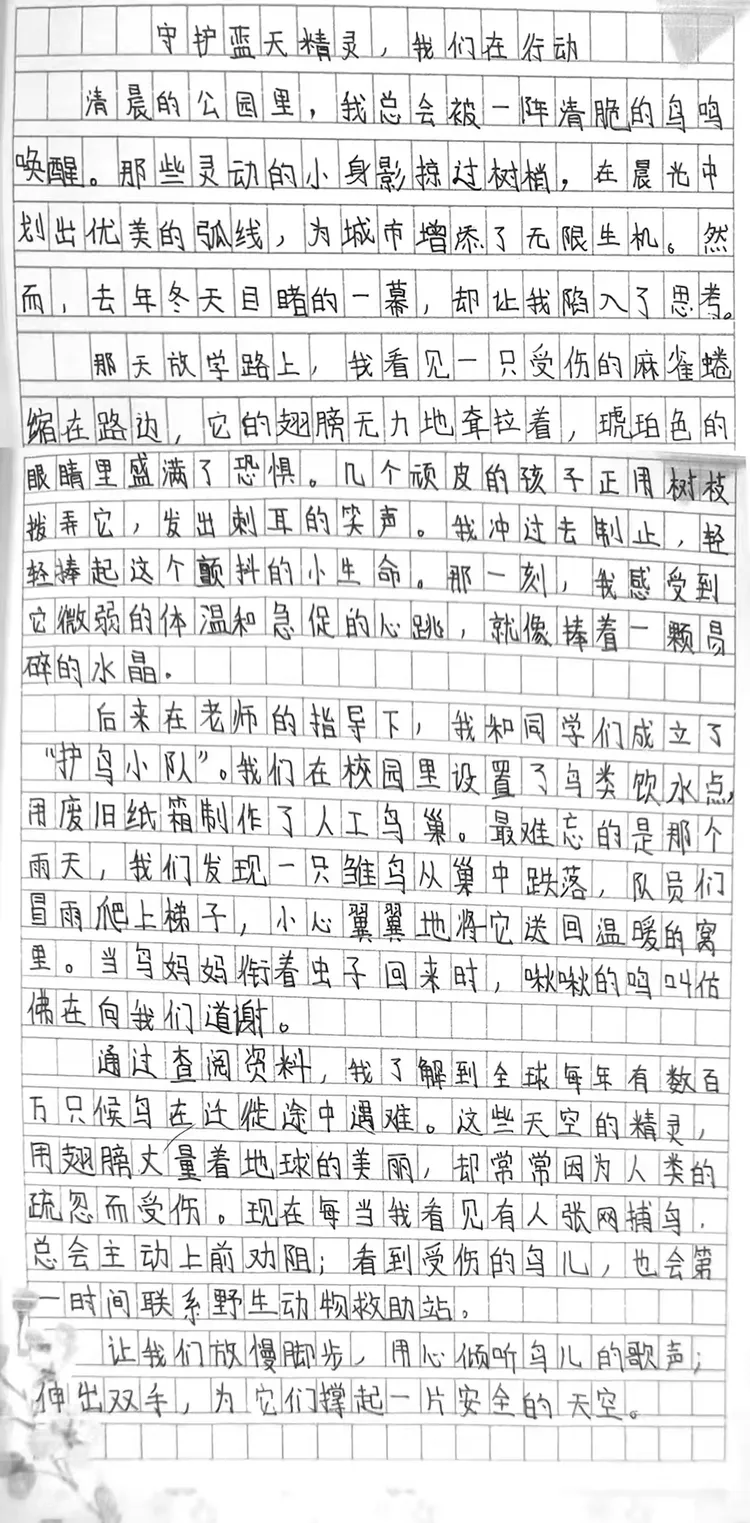 守护蓝天精灵，我们在行动
清晨的公园里，我总会被一阵清脆的鸟鸣
唤醒。那些灵动的小身影掠过树梢，在晨光中
划出优美的弧线，为城市增添了无限生机。然
而，去年冬天目睹的一幕，却让我陷入了思考。
那天放学路上，我看见一只受伤的麻雀蜷
缩在路边，它的翅膀无力地耷拉着，琥珀色的
眼睛里盛满了恐惧。几个顽皮的孩子正用树枝
拨弄它，发出刺耳的笑声。我冲过去制止，轻
轻捧起这个颤抖的小生命。那一刻，我感受到
它微弱的体温和急促的心跳，就像捧着一颗易
碎的水晶.
后来在老师的指导下，我和同学们成立了
“护鸟小队”。我们在校园里设置了鸟类饮水点，
用废旧纸箱制作了人工鸟巢。最难忘的是那个
雨天，我们发现一只雏鸟从巢中跌落，队员们
冒雨爬上梯子，小心翼翼地将它送回温暖的窝
里。当鸟妈妈衔着虫子回来时，啾啾的鸣叫仿
佛在向我们道谢。
通过查阅资料，我了解到全球每年有数百
万只候鸟在迁徙途中遇难。这些天空的精灵，
用翅膀丈量着地球的美丽，却常常因为人类的
疏忽而受伤。现在每当我看见有人张网捕鸟，
总会主动上前劝阻；看到受伤的鸟儿，也会第
一时间联系野生动物救助站。
让我们放慢脚步，用心倾听鸟儿的歌声；
伸出双手，为它们撑起一片安全的天空。